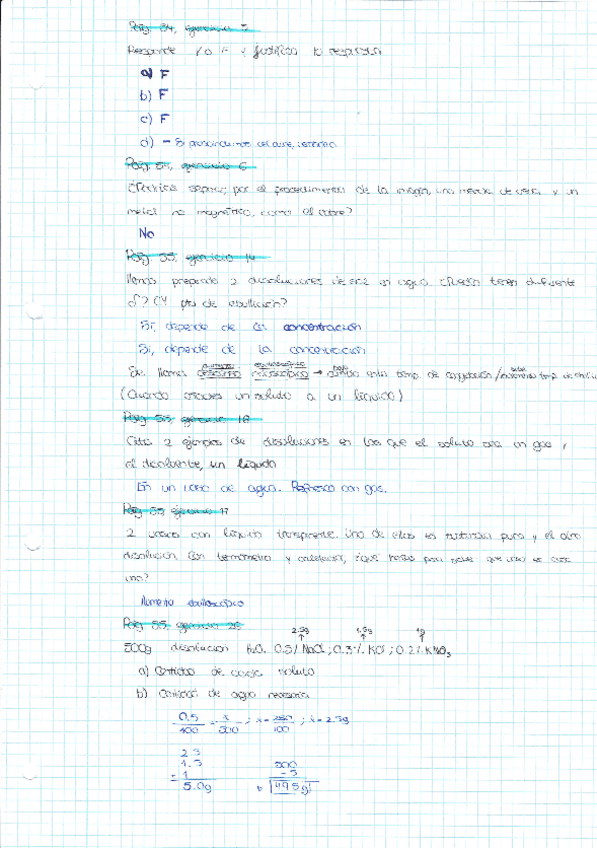 Pág. 54, ejercicio 5
Responde V o F y justifica tu respuesta
a) F
b) F
c) F
d) - Si
Pág. 54, ejercicio 6
¿Podrías separar, por el procedimiento de la imagen, una mezcla de y un
metal no magnético, como el cobre?
No
Pág 55, ejercicio 14
Hemos preparado 2 disoluciones de en agua. ¿Pueden tener diferente
d? ¿Y pto de ebullición?
Si, depende de la concentración
Si, depende de la concentración
Se llama descenso crioscópico → en la temp. de congelación / temp. de
(Cuando añades un soluto a un líquido)
Pág 55, ejercicio 18
Cita 2 ejemplos de disoluciones en los que el soluto sea un gas y
el disolvente, un líquido
En un vaso de agua. Refresco con gas.
Pág 55, ejercicio 17
2 vasos con líquido transparente. Uno de ellos es sustancia pura y el otro
disolución. Con termómetro y calefactor, ¿qué harías para saber que uno es cada
uno?
Aumento ebulloscópico
Pág 55, ejercicio 25
2.5g 1.5g 1g
500g disolución H2O. 0.5% NaCl; 0.3% KCl; 0.2% KNO3
a) Cantidad de cada soluto
b) Cantidad de agua necesaria
0.5/100 = x/500; x = 250/100; x = 2.5g
2.5
1.5 500
= 1 - 5
5.0g 495g